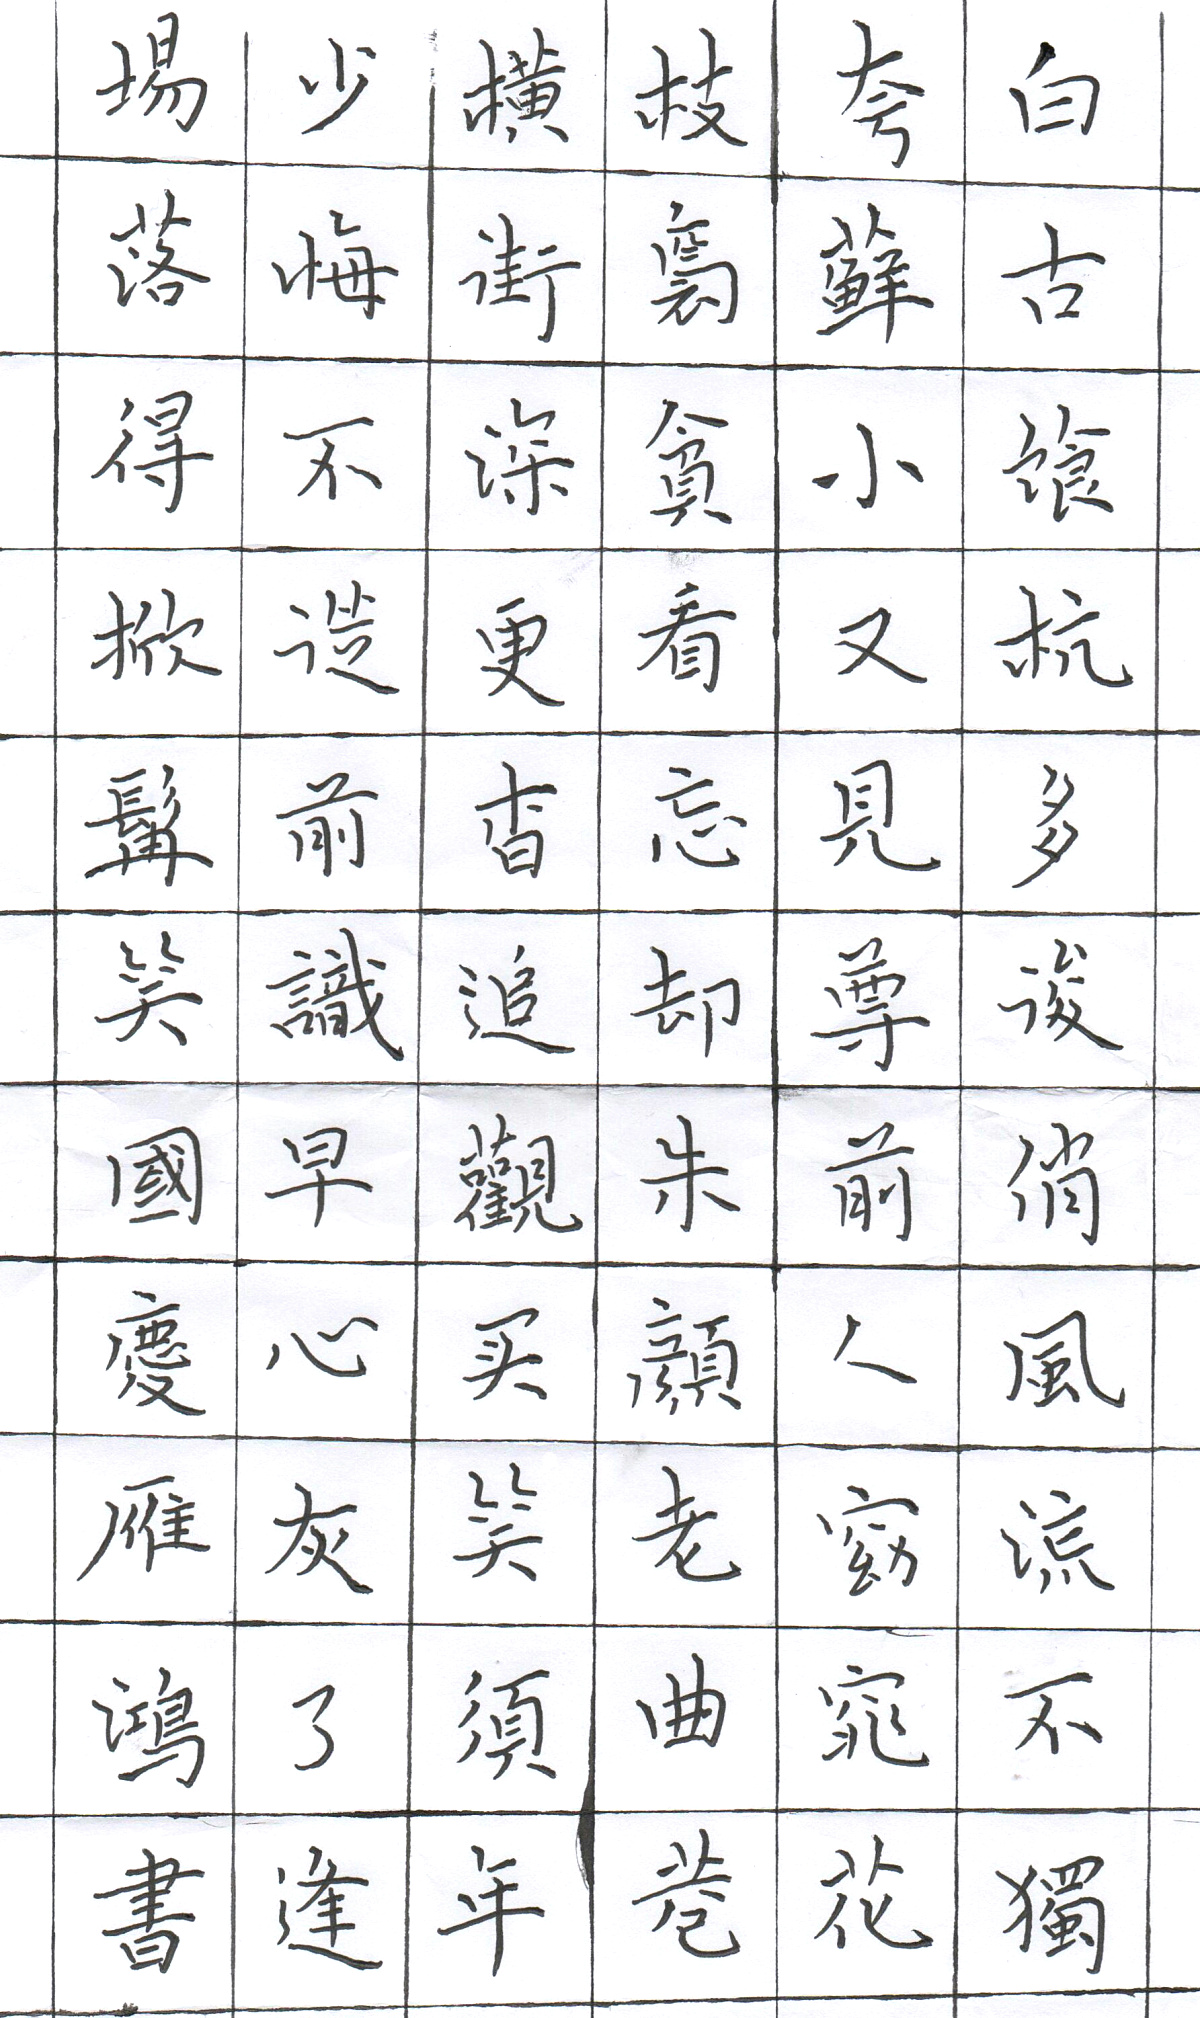 白古馀杭多俊俏風流不獨
夸蘇小又見尊前人窈窕花
枝裊貪看忘却朱顏老曲巷
橫街深更杳追觀买笑須年
少悔不從前識早心灰了逢
場落得掀髯笑國慶雁鴻書